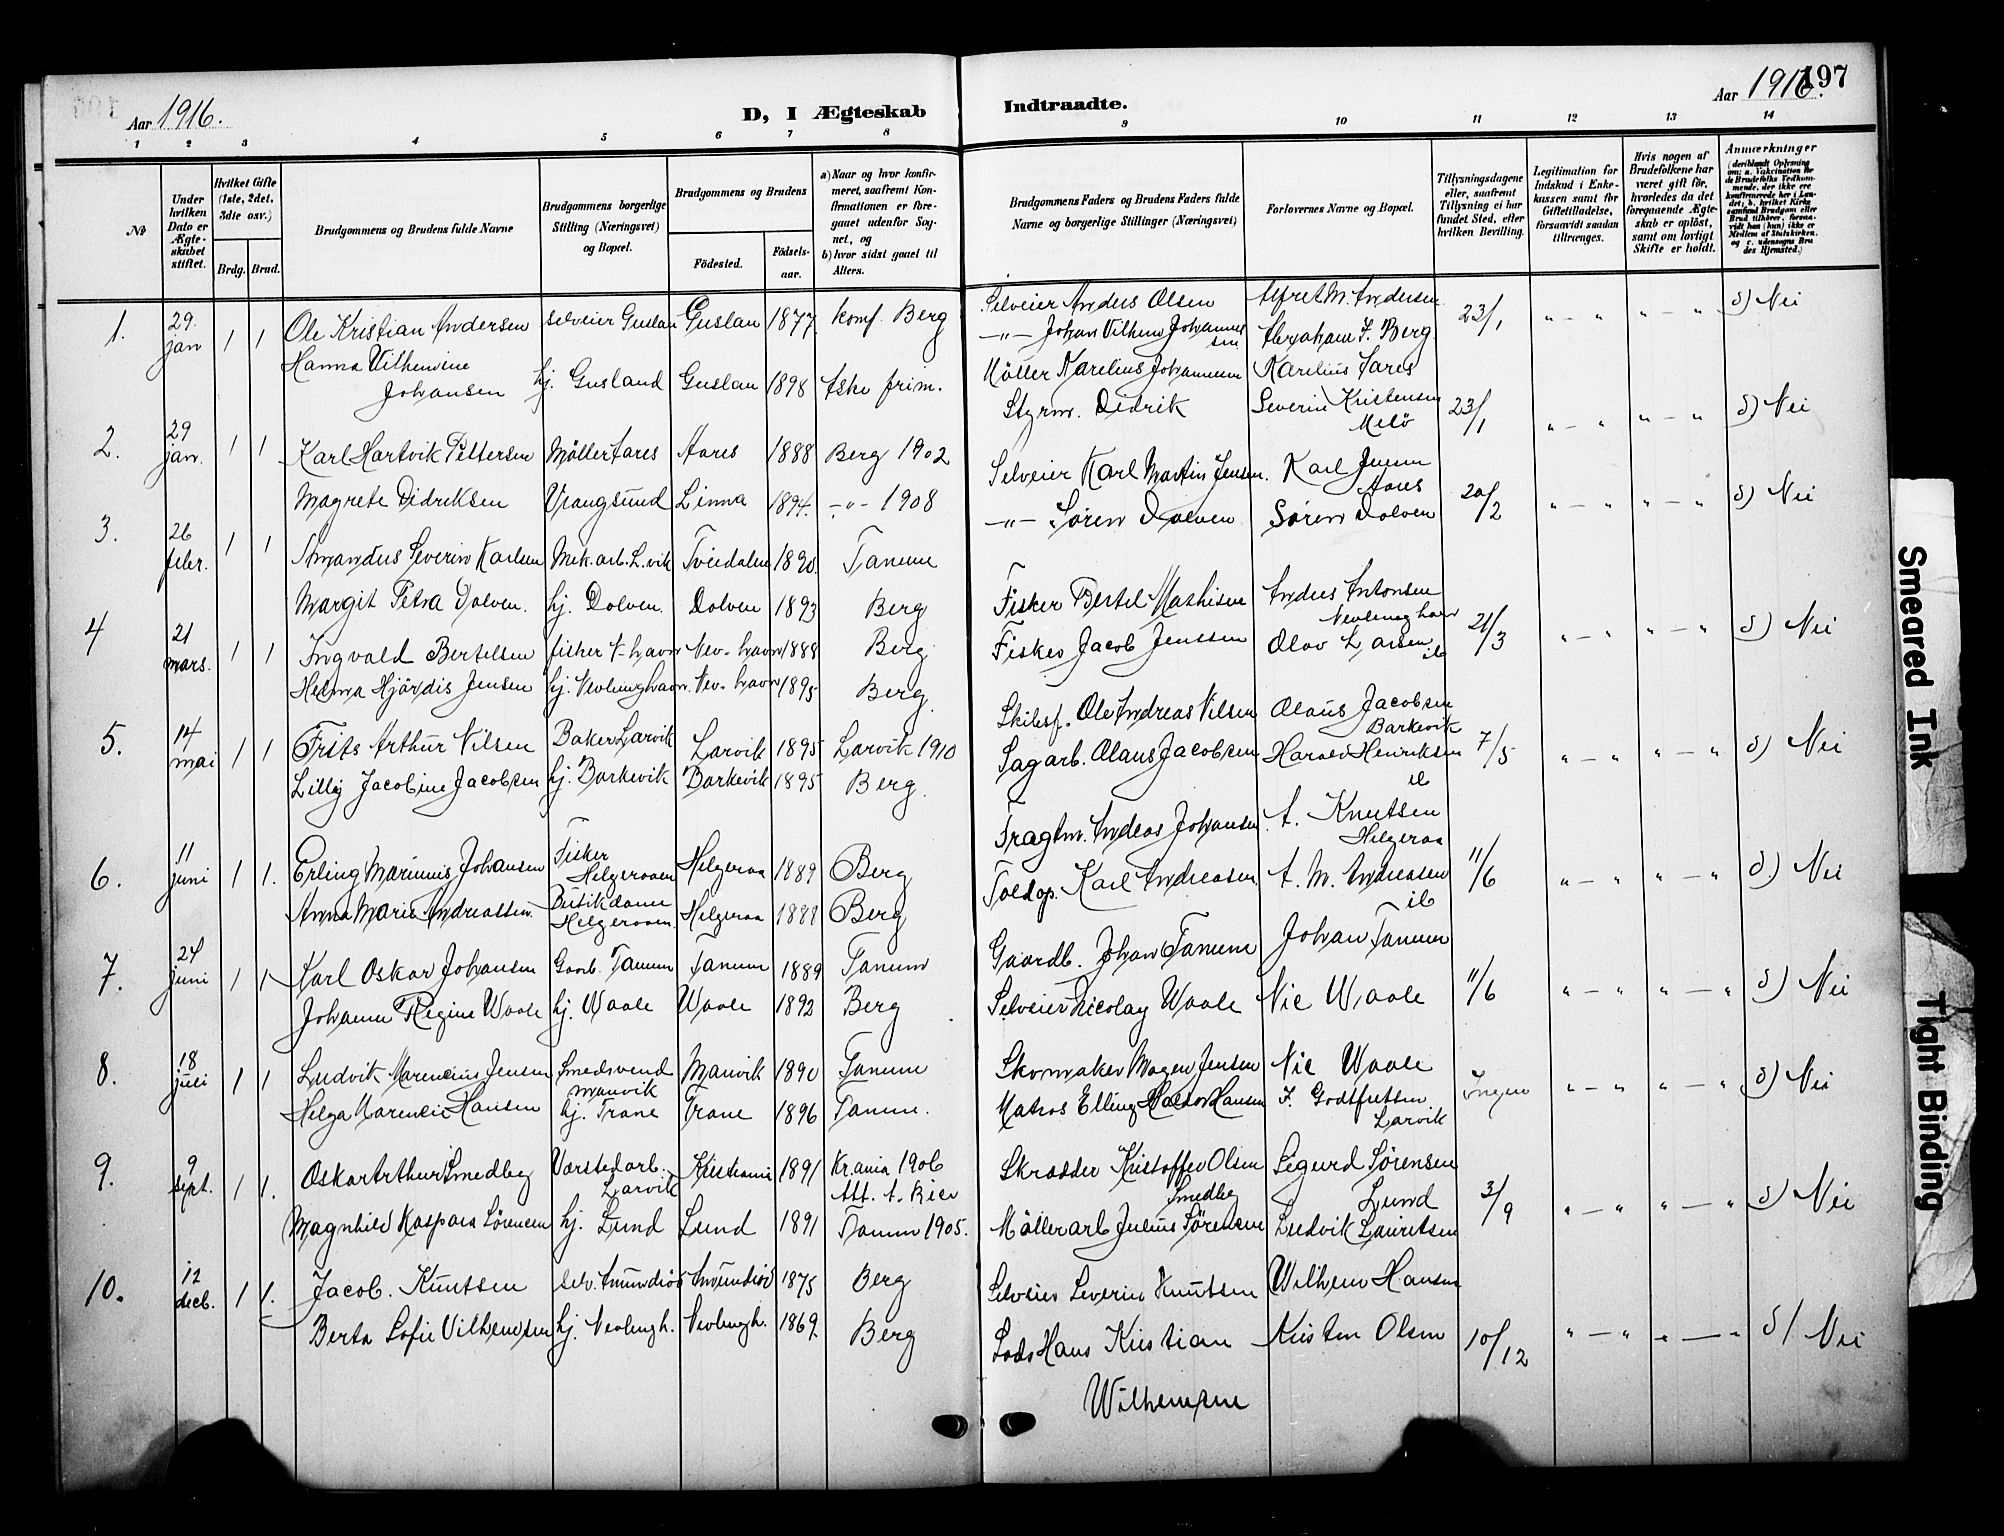 Aar 1916.
D, I Ægteskab Indtraadte.
Aar 1916.
197
1 2 3 4 5 6 7 8 9 10 11 12 13 14
No
Under hvilken Dato er Ægteskabet stiftet.
Hvilket Gifte (1ste, 2det, 3die osv.)
Brdg. Brud.
Brudgommens og Brudens fulde Navne
Brudgommens borgerlige Stilling (Næringsvei) og Bopæl.
Brudgommens og Brudens
Fødested.
Fødselsaar.
a) Naar og hvor konfirmeret, saafremt Konfirmationen er foregaaet udenfor Sognet, og
b) hvor sidst gaaet til Alters.
Brudgommens Faders og Brudens Faders fulde Navne og borgerlige Stillinger (Næringsvei)
Forlovernes Navne og Bopæl.
Tillysningsdagene eller, saafremt Tillysning ei har fundet Sted, efter hvilken Bevilling.
Legitimation for Indskud i Enkekassen samt for Giftetilladelse, forsaavidt saadan tiltrænges.
Hvis nogen af Brudefolkene har været gift før, hvorledes da det foregaaende Ægteskab er opløst, samt om lovligt Skifte er holdt.
Anmærkninger
1. 29 jan 1 1 Ole Kristian Andersen selveier Guslan Guslan 1877 konf. Berg Selveier Anders Olsen Alfret M. Andersen 23/1 " — " " — " d) Nei
Hanna Vilhemine Johansen hj. Gusland Guslan 1898 Aske frim. —"— Johan Vilhem Johannessen Abraham F. Berg
2. 29 jan. 1 1 Karl Hartvik Pettersen Møller Aares Aares 1888 Berg 1902 Møller Karelius Johannesen Karelius Aares 23/1 " — " " — " d) Nei
Magrete Didriksen Vrangsund Linna 1894. —"— 1908 Styrm. Didrik Severin Kristensen Melø
3. 26 febr. 1 1 Amandus Severin Karlsen Mek. arb. L.vik Tveidalen 1890. Tanum Selveier Karl Martin Jensen. Karl Jensen Aares 20/2 " — " " — " d) Nei
Margit Petra Dolven. hj. Dolven. Dolven 1893 Berg —"— Søren Dolven Søren Dolven
4 21 mars. 1 1 Ingvald Bertelsen fisker N-havn Nev-havn 1888 Berg Fisker Bertel Mathisen Anders Antonsen Nevlunghavn 21/3 " — " " — " d) Nei
Helma Hjørdis Jensen hj. Nevlunghavn. Nev-havn 1895 Berg Fisker Jacob Jenssen Olav Larsen ib
5. 14 mai 1 1 Frits Arthur Nilsen Baker Larvik Larvik 1895 Larvik 1910 Skibsf. Ole Andreas Nilsen Olaus Jacobsen Barkevik 7/5 " — " " — " d) Nei
Lilly Jacobine Jacobsen hj. Barkevik Barkevik 1895 Berg. Sagarb. Olaus Jacobsen Harald Henriksen ib
6. 11 juni 1 1. Erling Marinius Johansen Fisker Helgeraaen Helgeraa 1889 Berg Fragtm. Andreas Johansen A. Knutsen Helgeraa 11/6 " — " " — " d) Nei
Anna Marie Andreassen. Butikdame Helgeraaen. Helgeraa 1888 Berg Toldop. Karl Andreasen A. M. Andreasen ib
7. 24 juni 1 1 Karl Oskar Johansen Gaarb. Tanum Tanum 1889 Tanum Gaardb. Johan Tanum Johan Tanum 11/6 " — " " — " d) Nei
Johanne Regine Waale hj. Waale Waale 1892 Berg Selveier Nicolay Waale Nic Waale
8. 18 juli 1 1 Ludvik Marencius Jensen Smedsvend Manvik Manvik 1890 Tanum Skomaker Magen Jensen Nic Waale Ingen " — " " — " d) Nei
Helga Marencie Hansen hj. Trane Trane 1896 Tanum. Matros Elling Haldor Hansen F. Godtfretsen Larvik
9. 9 sept. 1 1. Oskar Arthur Smedbeg Værstedarb. Larvik Kristiania 1891 Kr.ania 1906 Att. A. Bier Skrædder Kristoffer Olsen Smedbeg Sigurd Sørensen Lund 3/9 " — " " — " d) Nei
Magnhild Kaspara Sørensen hj. Lund Lund 1891 Tanum 1905. Møllerarb Julius Sørensen Ludvik Lauritsen
10. 12 decb. 1 1. Jacob. Knutsen selv. Amundrød Amundrød 1875 Berg Selveier Severin Knutsen Wilhem Hansen 10/12 " — " " — " d) Nei
Berta Sofie Vilhemsen hj. Nevlungh. Nevlungh. 1869. Berg Lods Hans Kristian Wilhemsen Kristen Olsen
Smeared Ink
Tight Binding